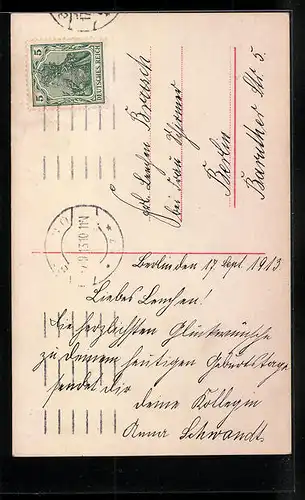 5 5
DEUTSCHES REICH
Frl. Lenchen
bei Frau
Berlin
Baruther Str 5.
Berlin den 17 Spt. 1913.
Liebes Lenchen!
Die herzlichsten Glückwünsche
zu deinem heutigen Geburtstage
sendet dir
deine Kollegin
Anna Schwandt.